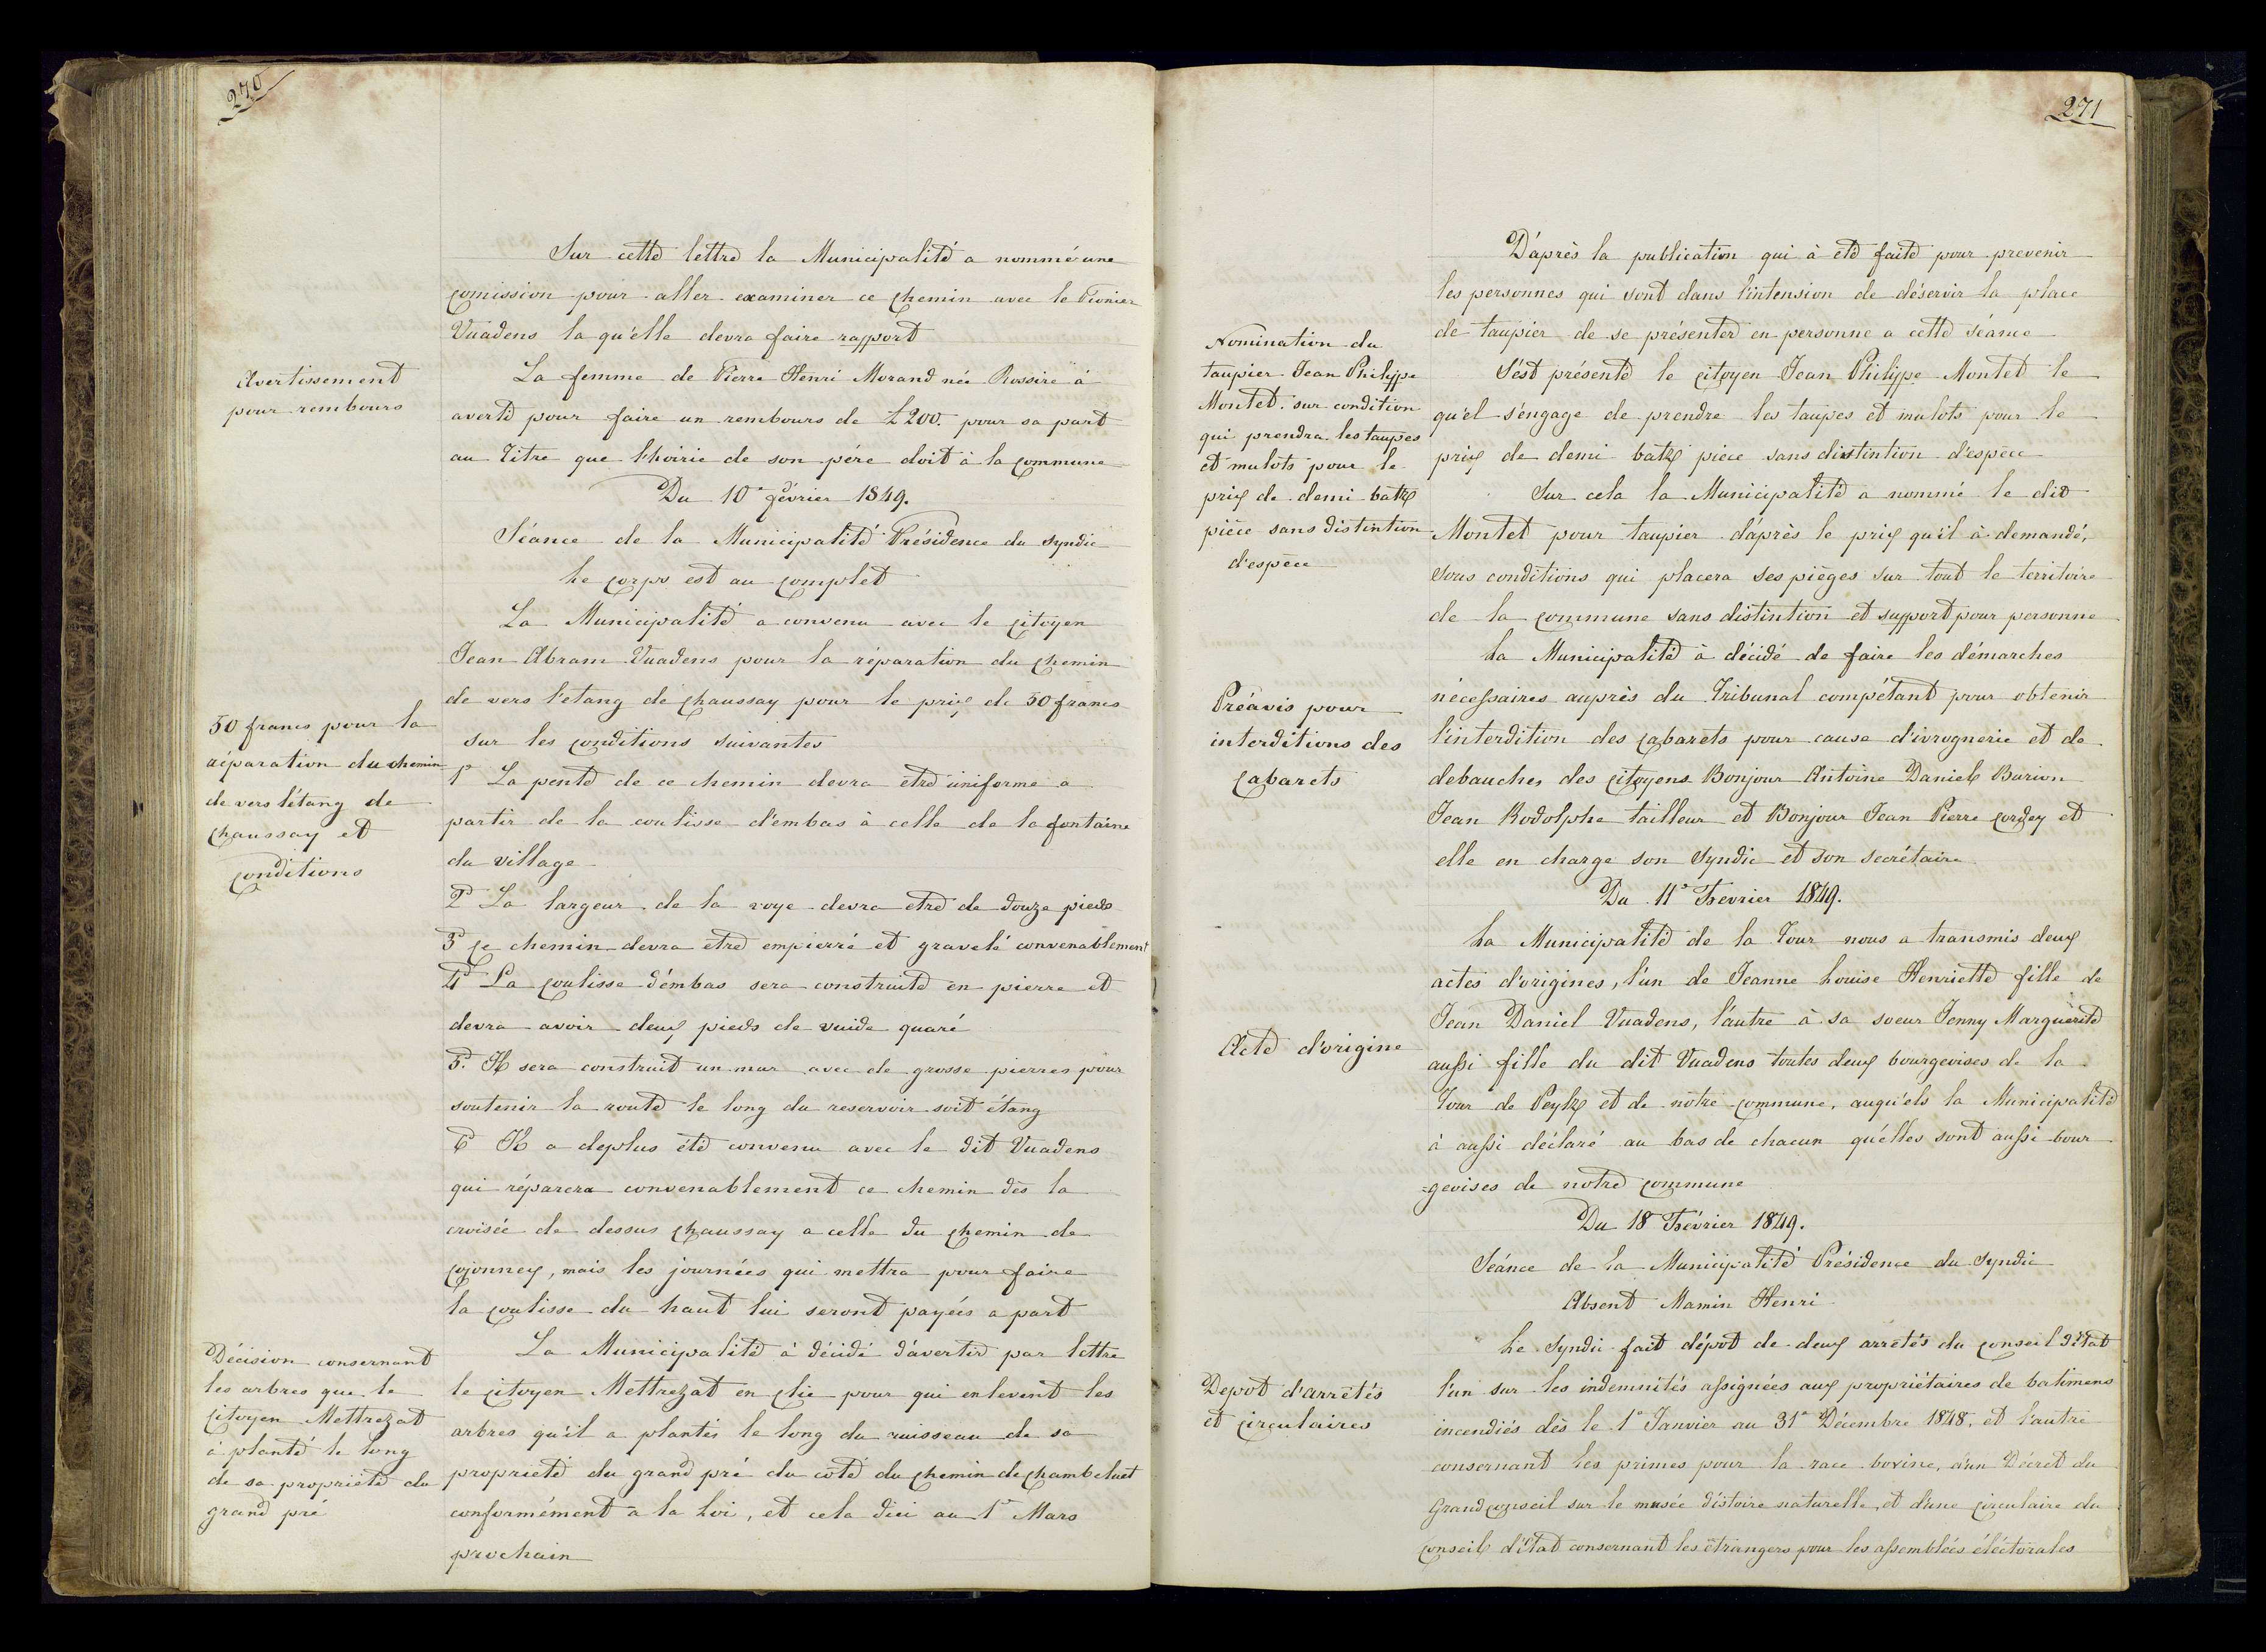 270
Sur cette lettre la Municipalité a nommé une
comission pour aller examiner ce chemin avec le Pionier
Vuadens la qu'élle devra faire rapport
Avertissement
pour rembours
La femme de Pierre Henri Morand née Rossire à
averti pour faire un rembours de £ 200. pour sa part
au Titre que l'hoirie de son pére doit à la commune
Du 10e février 1849.
Séance de la Municipalité Présidence du Syndic
Le corps est au complet
La Municipalité a convenu avec le citoyen
Jean Abram Vuadens pour la réparation du chemin
de vers l'etang de chaussay pour le prix de 50 francs
sur les conditions suivantes
50 francs pour la
réparation du chemin
de vers l'étang de
chaussay et
conditions
1° La pente de ce chemin devra etre uniforme a
partir de la coulisse d'embas à celle de la fontaine
du village
2° La largeur de la voye devra etre de douze pieds
3° ce chemin devra etre empierré et gravelé convenablement
4° La coulisse d'émbas sera construite en pierre et
devra avoir deux pieds de vuide quaré
5°. Il sera construit un mur avec de grosse pierres pour
soutenir la route le long du reservoir soit étang
6° Il a deplus été convenu avec le dit Vuadens
qui réparera convenablement ce chemin dès la
croisée de dessus chaussay a celle du chemin de
cojonnex, mais les journées qui mettra pour faire
la coulisse du haut lui seront payées a part
Décision consernant
les arbres que le
citoyen Mettrezat
à planté le long
de sa propriété du
grand pré
La Municipalité à décidé d'avertir par lettre
le citoyen Mettrezat en clie pour qui enlevent les
arbres qu'il a plantés le long du ruisseau de sa
propriété du grand pré du coté du chemin de chambeluet
conformément a la Loi, et cela dici au 1er Mars
prochain
271
D'après la publication qui à eté faite pour prevenir
les personnes qui sont dans l'intension de déservir la place
de taupier de se présenter en personne a cette séance
Nomination du
taupier Jean Philippe
Montet. sur condition
qui prendra les taupes
et mulots pour le
prix de demi batz
pièce sans distintion
d'espèce
S'ést présenté le citoyen Jean Philippe Montet le
qu'el s'éngage de prendre les taupes et mulots pour le
prix de demi batz pièce sans distintion d'espèce
Sur cela la Municipalité a nommé le dit
Montet pour taupier d'après le prix qu'il à demandé,
sous conditions qui placera ses pièges sur tout le territoire
de la commune sans distintion et support pour personne
Préavis pour
interditions des
cabarets
La Municipalité à décidé de faire les démarches
nécessaires auprès du Tribunal compétant pour obtenir
l'interdition des cabarets pour cause d'ivrognerie et de
debauches des citoyens Bonjour Antoine Daniel Burion
Jean Rodolphe tailleur et Bonjour Jean Pierre cordey et
elle en charge son Syndic et son secrétaire
Du 11e Fevrier 1849.
La Municipalité de la Tour nous a transmis deux
actes d'origines, l'un de Jeanne Louise Henriette fille de
Jean Daniel Vuadens, l'autre à sa soeur Jenny Marguerite
Acte d'origine
aussi fille du dit Vuadens toutes deux bourgeoises de la
Tour de Peylz et de notre commune, auqu'els la Municipalité
à aussi déclaré au bas de chacun qu'élles sont aussi bour
=geoises de notre commune
Du 18e Février 1849.
Séance de la Municipalité Présidence du Syndic
Absent Mamin Henri
Depot d'arretés
et circulaires
Le Syndic fait dépot de deux arretés du conseil d'état
l'un sur les indemnités assignées aux propriétaires de batimens
incendiés dès le 1e Janvier au 31e Décembre 1848, et l'autre
consernant les primes pour la race bovine, d'un Décret du
Grand conseil sur le musée d'istoire naturelle, et d'une circulaire du
conseil d'état consernant les étrangers pour les assemblées éléctorales